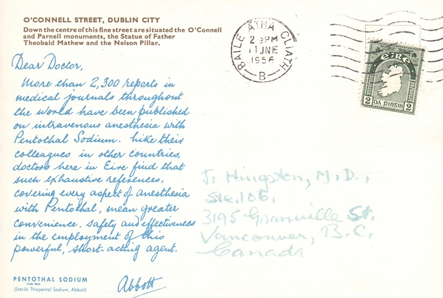 O'CONNELL STREET, DUBLIN CITY
Down the centre of this fine street are situated the O'Connell
and Parnell monuments, the Statue of Father
Theobald Mathew and the Nelson Pillar.
Dear Doctor,
More than 2,300 reports in
medical journals throughout
the world have been published
on intravenous anesthesia with
Pentothal Sodium. Like their
colleagues in other countries,
doctors here in Eire find that
such exhaustive references,
covering every aspect of anesthesia
with Pentothal, mean greater
convenience, safety and effectiveness
in the employment of this
powerful, short-acting agent.
Abbott
PENTOTHAL SODIUM
(Sterile Thiopental Sodium, Abbott)
BAILE ÁTHA CLIATH
PM
11 JNE
1956
B
ÉIRE
2 2
DÁ PINGIN
J. Hingston, M.D.,
Ste. 106,
3195 Granville St.
Vancouver, B.C.
Canada